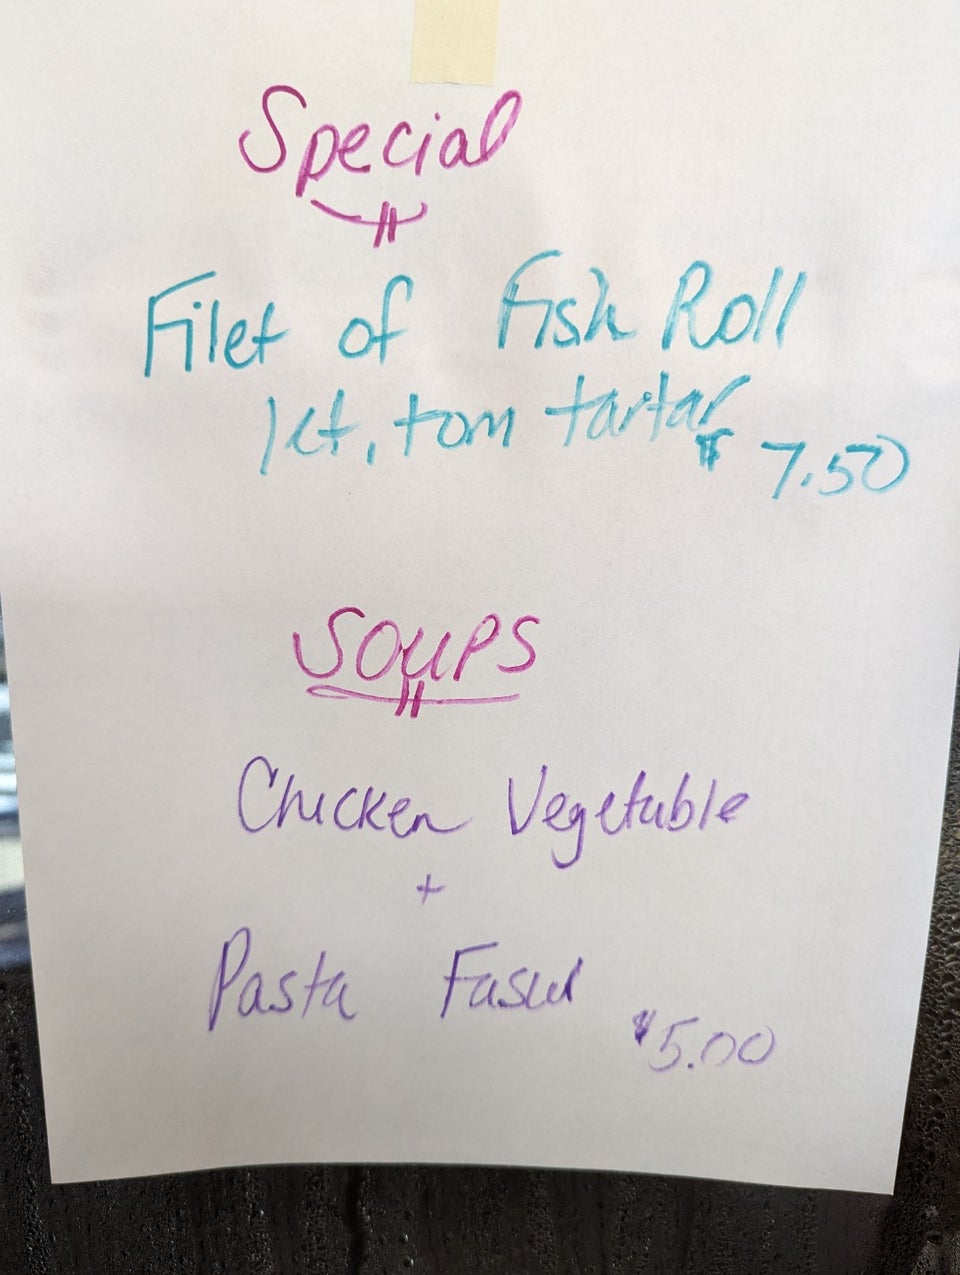 Special
Filet of Fish Roll
let, tom tartar
$ 7.50
SOUPS
Chicken Vegetable
+
Pasta Fasul
$5.00